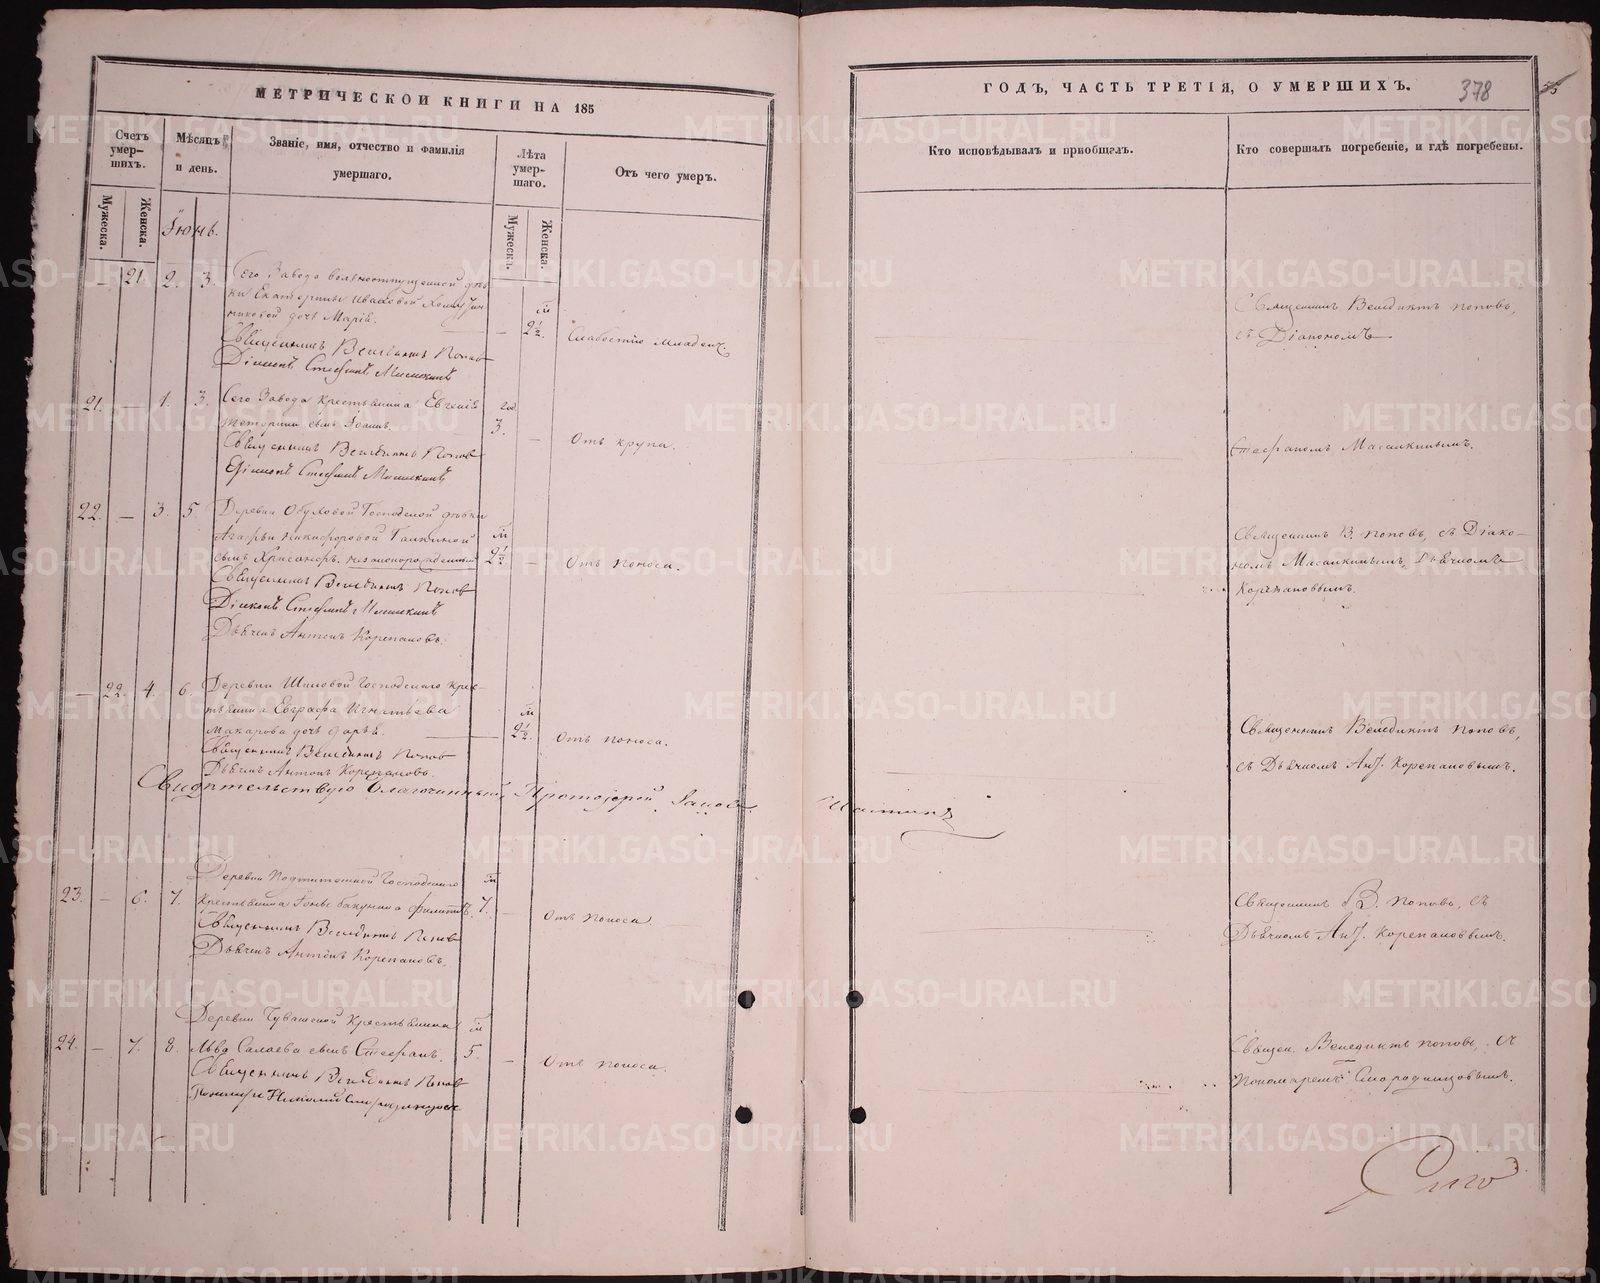 МЕТРИЧЕСКОЙ КНИГИ НА 185
Счетъ умер-шихъ.
Мѣсяцъ и день.
Званіе, имя, отчество и фамилія умершаго.
Лѣта умер-шаго.
Отъ чего умеръ.
Мужеска.
Женска.
Мужеска.
Женска.
Іюнь.
— 21. 2. 3. Сего Завода вольноотпущенной дѣв-
ки Екатерины Ивановой
дочь Марія. — 2½. Слабостію младен.
Священникъ Венедиктъ Поповъ
Діаконъ Стефанъ Масалкинъ
21. — 1. 3. Сего Завода крестьянина Евгенія год
сынъ Іоаннъ. 3. — Отъ крупа.
Священникъ Венедиктъ Поповъ
Діаконъ Стефанъ Масалкинъ
22. — 3. 5. Деревни Обуховой Господской дѣвки
Агафьи Никифоровой Галкиной м
сынъ Хрисанфъ, незаконорожденный 2½ — Отъ поноса.
Священникъ Венедиктъ Поповъ
Діаконъ Стефанъ Масалкинъ
Дьячекъ Антонъ Корепановъ.
— 22. 4. 6. Деревни Шиловой Господскаго крес-
тьянина Евграфа Игнатьева м
Макарова дочь Дарья. 2½. Отъ поноса.
Священникъ Венедиктъ Поповъ
Дьячекъ Антонъ Корепановъ.
Свидѣтельствую Благочинный Протоіерей
23. — 6. 7. Деревни Господскаго м
крестьянина Іоны Бакунина Филиппъ. 7. — Отъ поноса
Священникъ Венедиктъ Поповъ
Дьячекъ Антонъ Корепановъ.
Деревни Чувашской Крестьянина м
24. — 7. 8. Льва сынъ Стефанъ. 5. — Отъ поноса.
Священникъ Венедиктъ Поповъ
Пономарь Николай Смородинцовъ
ГОДЪ, ЧАСТЬ ТРЕТІЯ, О УМЕРШИХЪ.
378
Кто исповѣдывалъ и пріобщалъ.
Кто совершалъ погребеніе, и гдѣ погребены.
Священникъ Венедиктъ Поповъ,
съ Діакономъ
Стефаномъ Масалкинымъ.
Священникъ В. Поповъ, съ Діако-
номъ Масалкинымъ, Дьячкомъ
Корепановымъ.
Священникъ Венедиктъ Поповъ,
съ Дьячкомъ Ант. Корепановымъ.
Священникъ В. Поповъ, съ
Дьячкомъ Ант. Корепановымъ.
Священ. Венедиктъ Поповъ, съ
Пономаремъ Смородинцовымъ.
METRIKI.GASO-URAL.RU